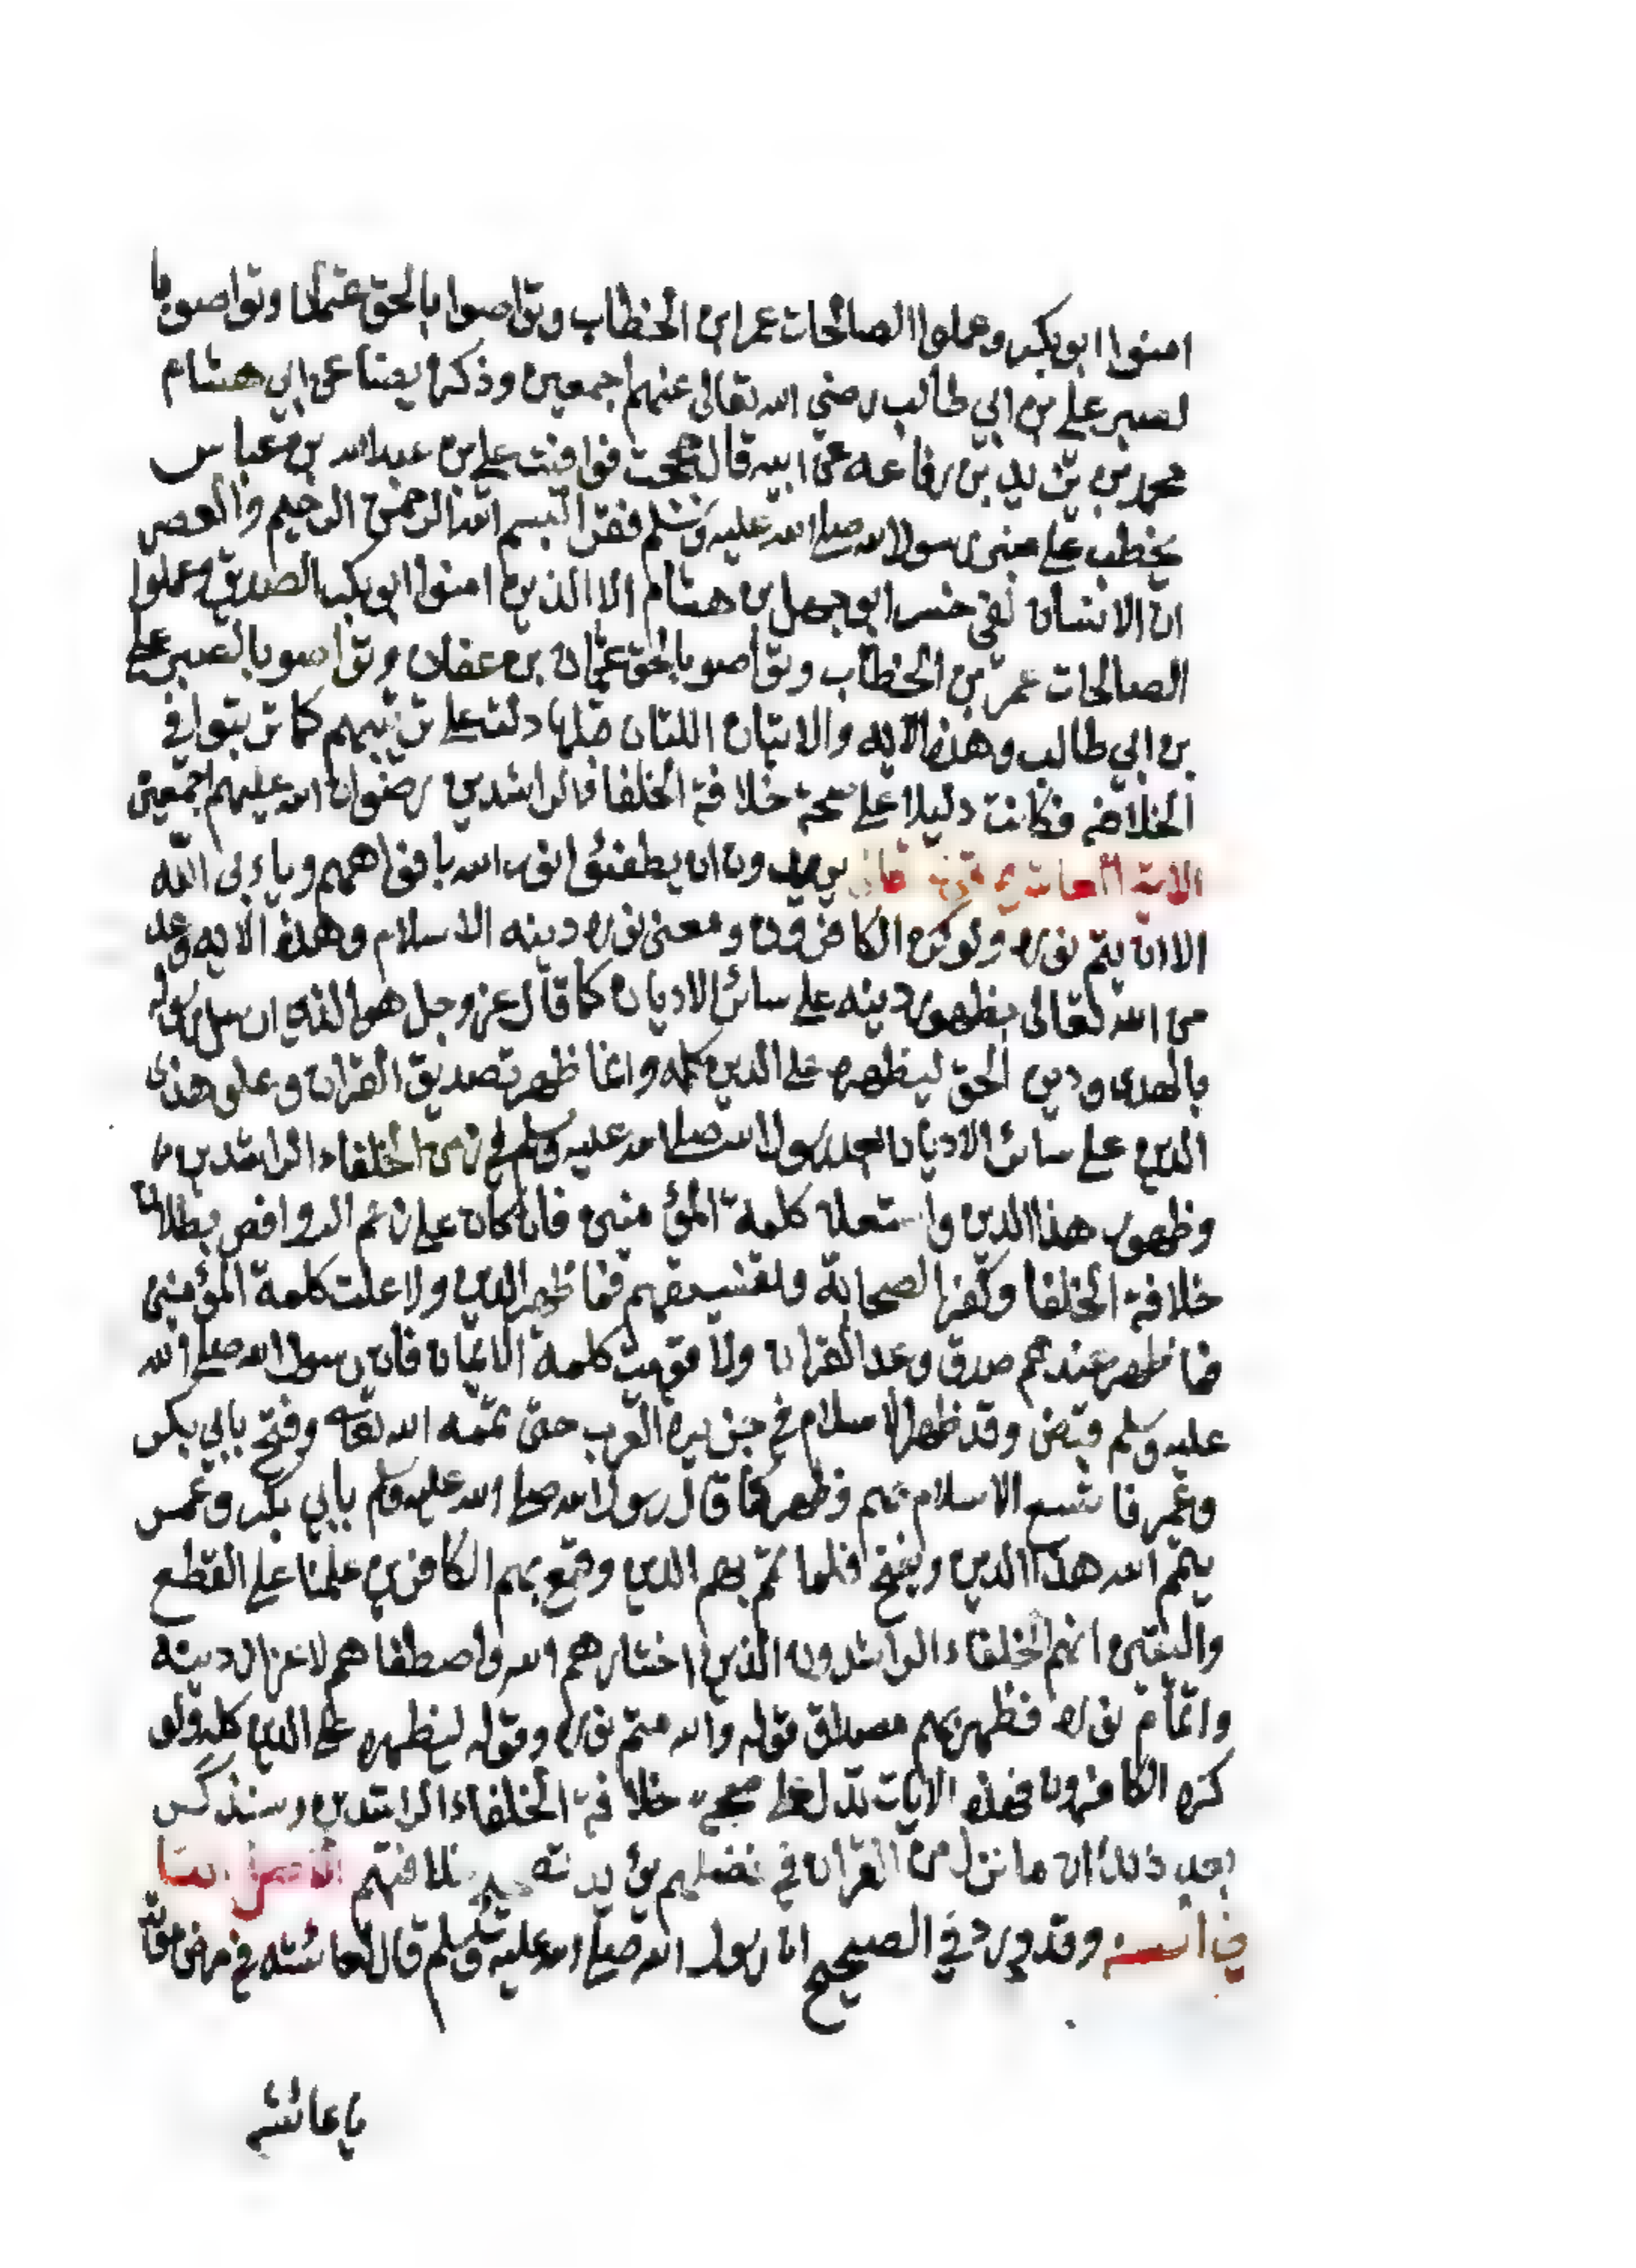 امنوا ابو بكر وعملوا الصالحات عمر ابن الخطاب وتواصوا بالحق عثمان وتواصو با
لصبر علي بن ابي طالب رضي الله تعالى عنهم اجمعين وذكر ايضا عن ابي هشام
محمد بن يزيد بن رفاعه عن ابيه قال حججت فوافيت علي بن عبد الله بن عباس
يخطب على منبر رسول الله صلى الله عليه وسلم فقرا بسم الله الرحمن الرحيم والعصر
ان الانسان لفي خسر ابو جهل بن هشام الا الذين امنوا ابو بكر الصديق وعملوا
الصالحات عمر بن الخطاب وتواصو بالحق عثمان بن عفان وتواصو بالصبر علي
بن ابي طالب وهذه الايه والايتان اللتان قبلها دلت على ترتيبهم كما ترتبوا في
الخلافه فكانت دليلا على صحة خلافة الخلفاء الراشدين رضوان الله عليهم اجمعين
الاية العاشرة قوله تعالى يريدون ان يطفئوا نور الله بافواههم وياءبى الله
الا ان يتم نوره ولو كره الكافرون ومعنى نوره دينه الاسلام وهذه الايه وعد
من الله تعالى بظهور دينه على سائر الاديان كما قال عز وجل هو الذي ارسل رسوله
بالهدى ودين الحق ليظهره على الدين كله وانما ظهر تصديق القران وعلو هذا
الدين على سائر الاديان بعد رسول الله صلى الله عليه وسلم في زمن الخلفاء الراشدين
وظهور هذا الدين واستعلا كلمة المؤمنين فان كان على زعم الروافض بطلان
خلافة الخلفا وكفر الصحابة وتفسيقهم فما ظهر الدين ولا علت كلمة المؤمنين
فما ظهر عندهم صدق وعد القران ولا قويت كلمة الايمان فان رسول الله صلى الله
عليه وسلم قبض وقد ظهر الاسلام في جزيرة العرب حتى تممه الله تعالى وفتح بابي بكر
وعمر فاتسع الاسلام بهم وظهر كما قال رسول الله صلى الله عليه وسلم بابي بكر وعمر
يتمم الله هذا الدين ويفتح فلما تم بهم الدين وقمع بهم الكافرين علمنا على القطع
واليقين انهم الخلفاء الراشدون الذين اختارهم الله واصطفاهم لاعزاز دينه
واتمام نوره فظهر بهم مصداق قوله والله متم نوره وقوله ليظهره على الدين كله ولو
كره الكافرون فهذه الايات تدل على صحة خلافة الخلفاء الراشدين وسنذكر
بعد ذلك ان ما نزل من القران في فضلهم يؤيد خلافتهم
في السنة وقد ورد في الصحيح ان رسول الله صلى الله عليه وسلم قال لعائشه في مرض موته
يا عائشه